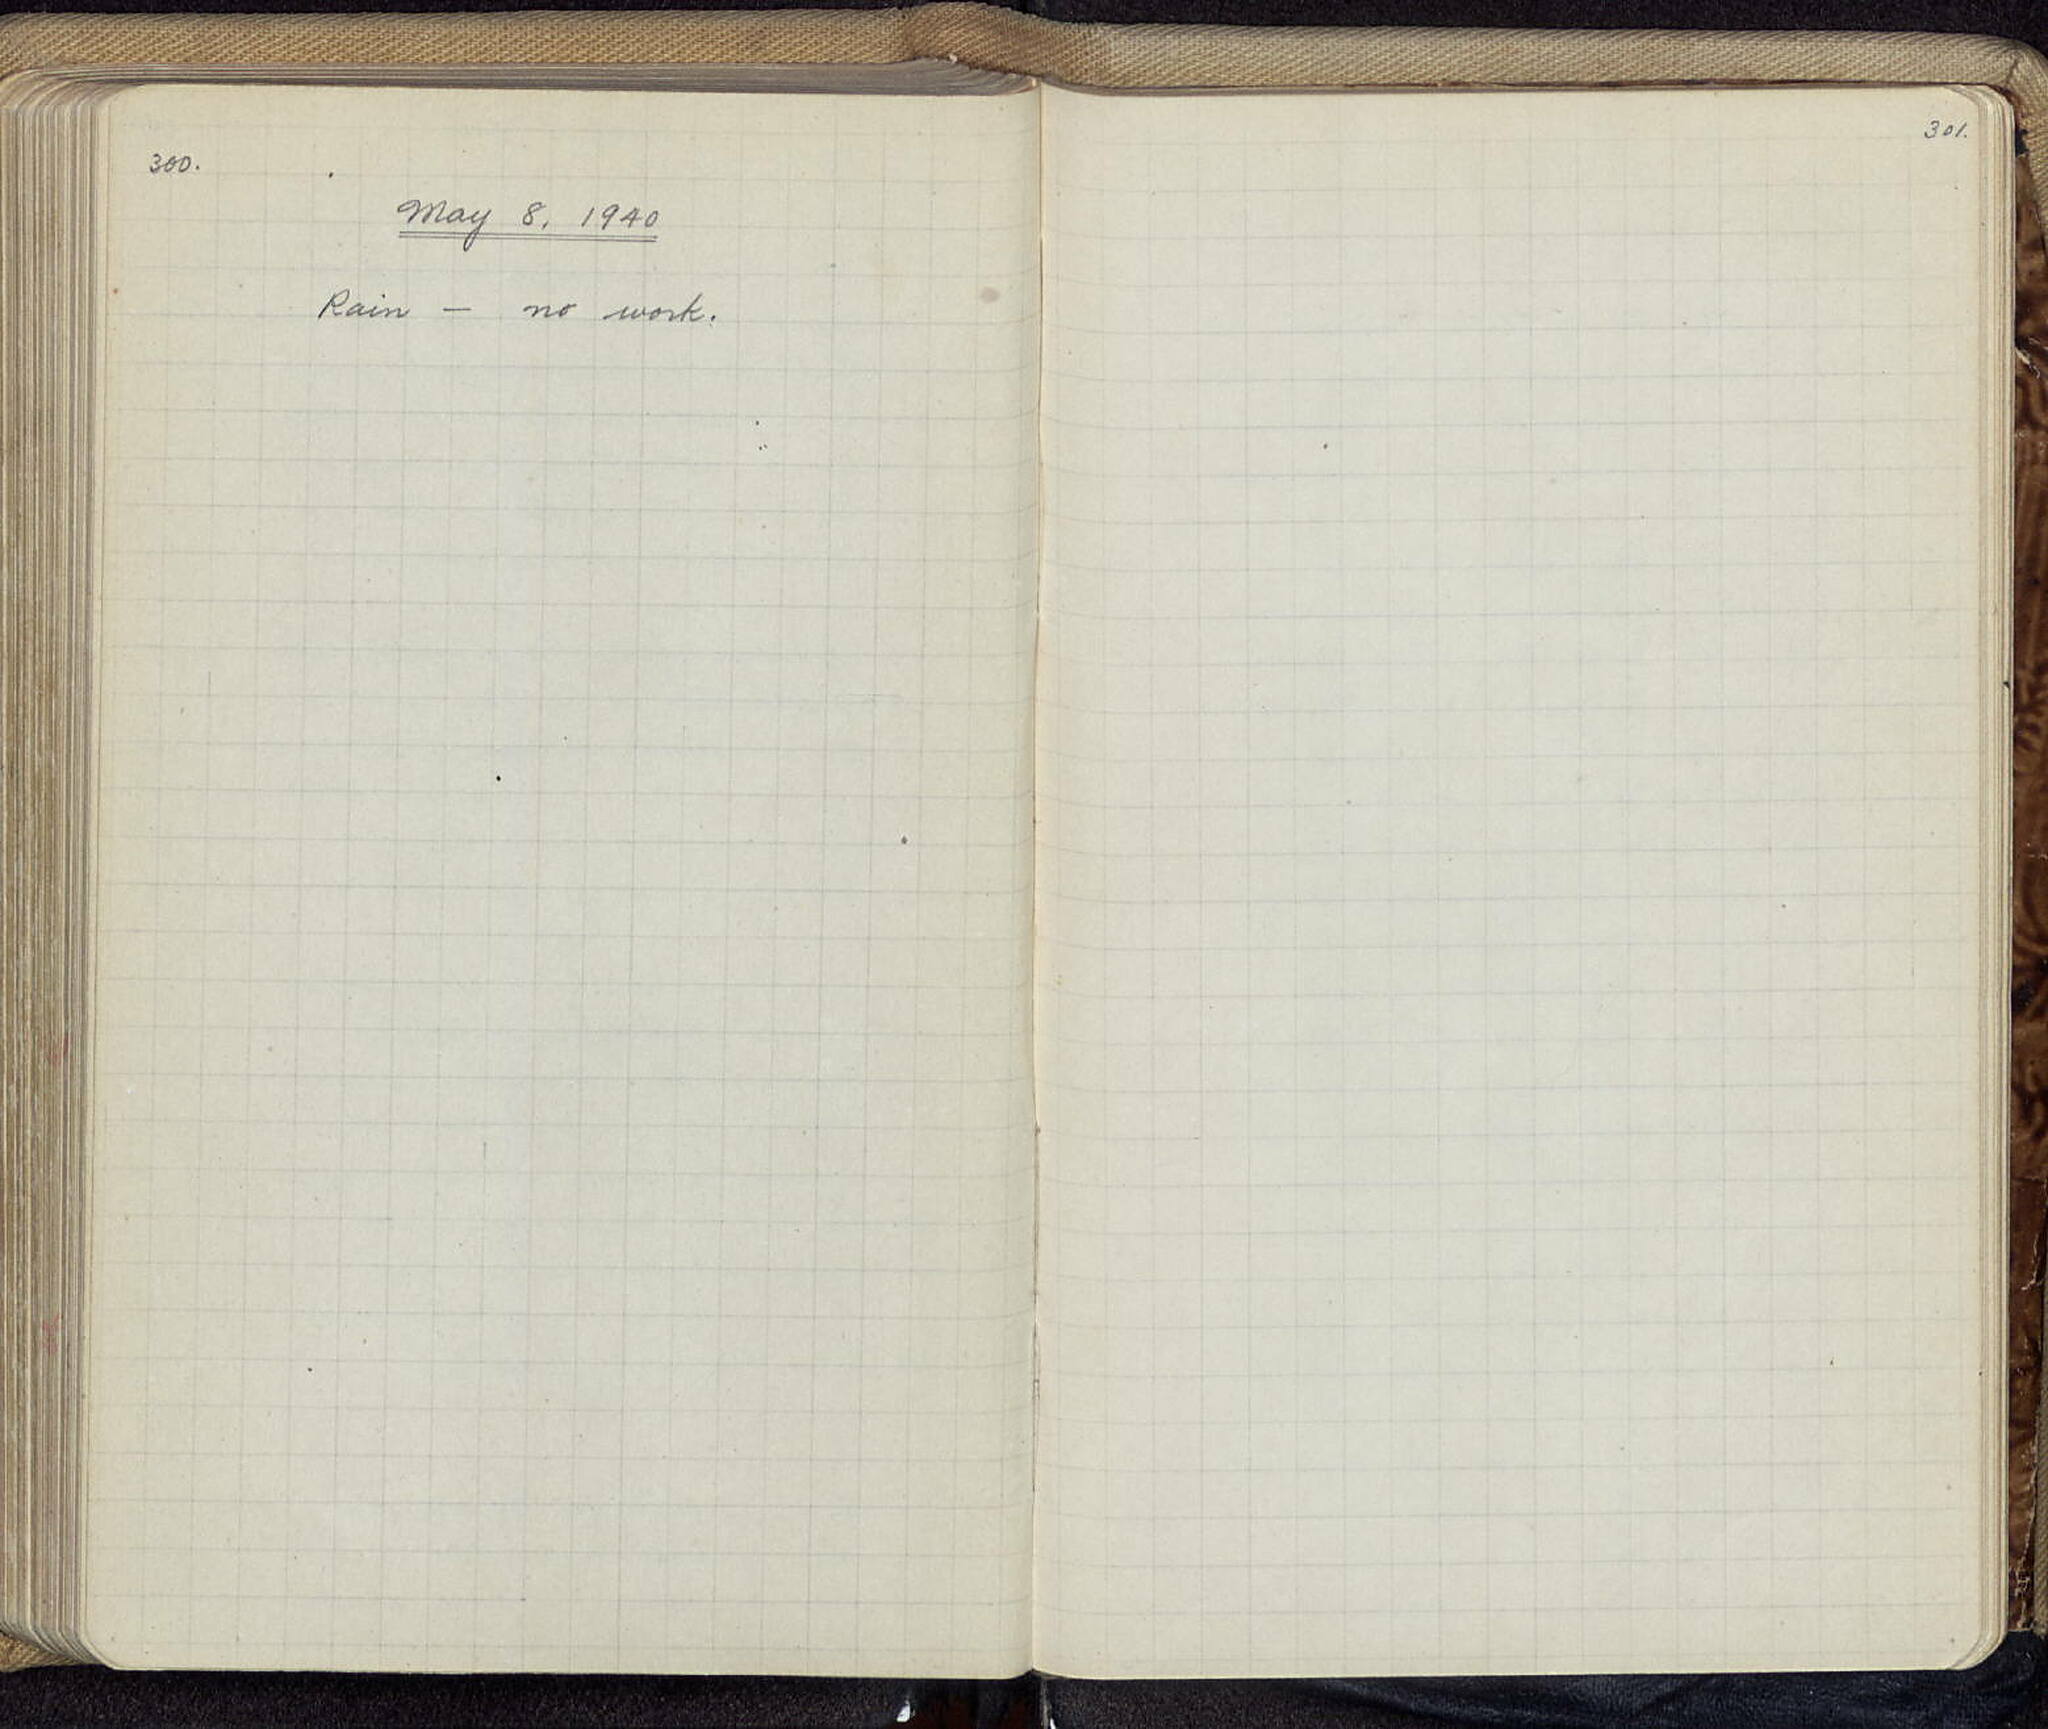 300.
May 8, 1940
Rain — no work.
301.